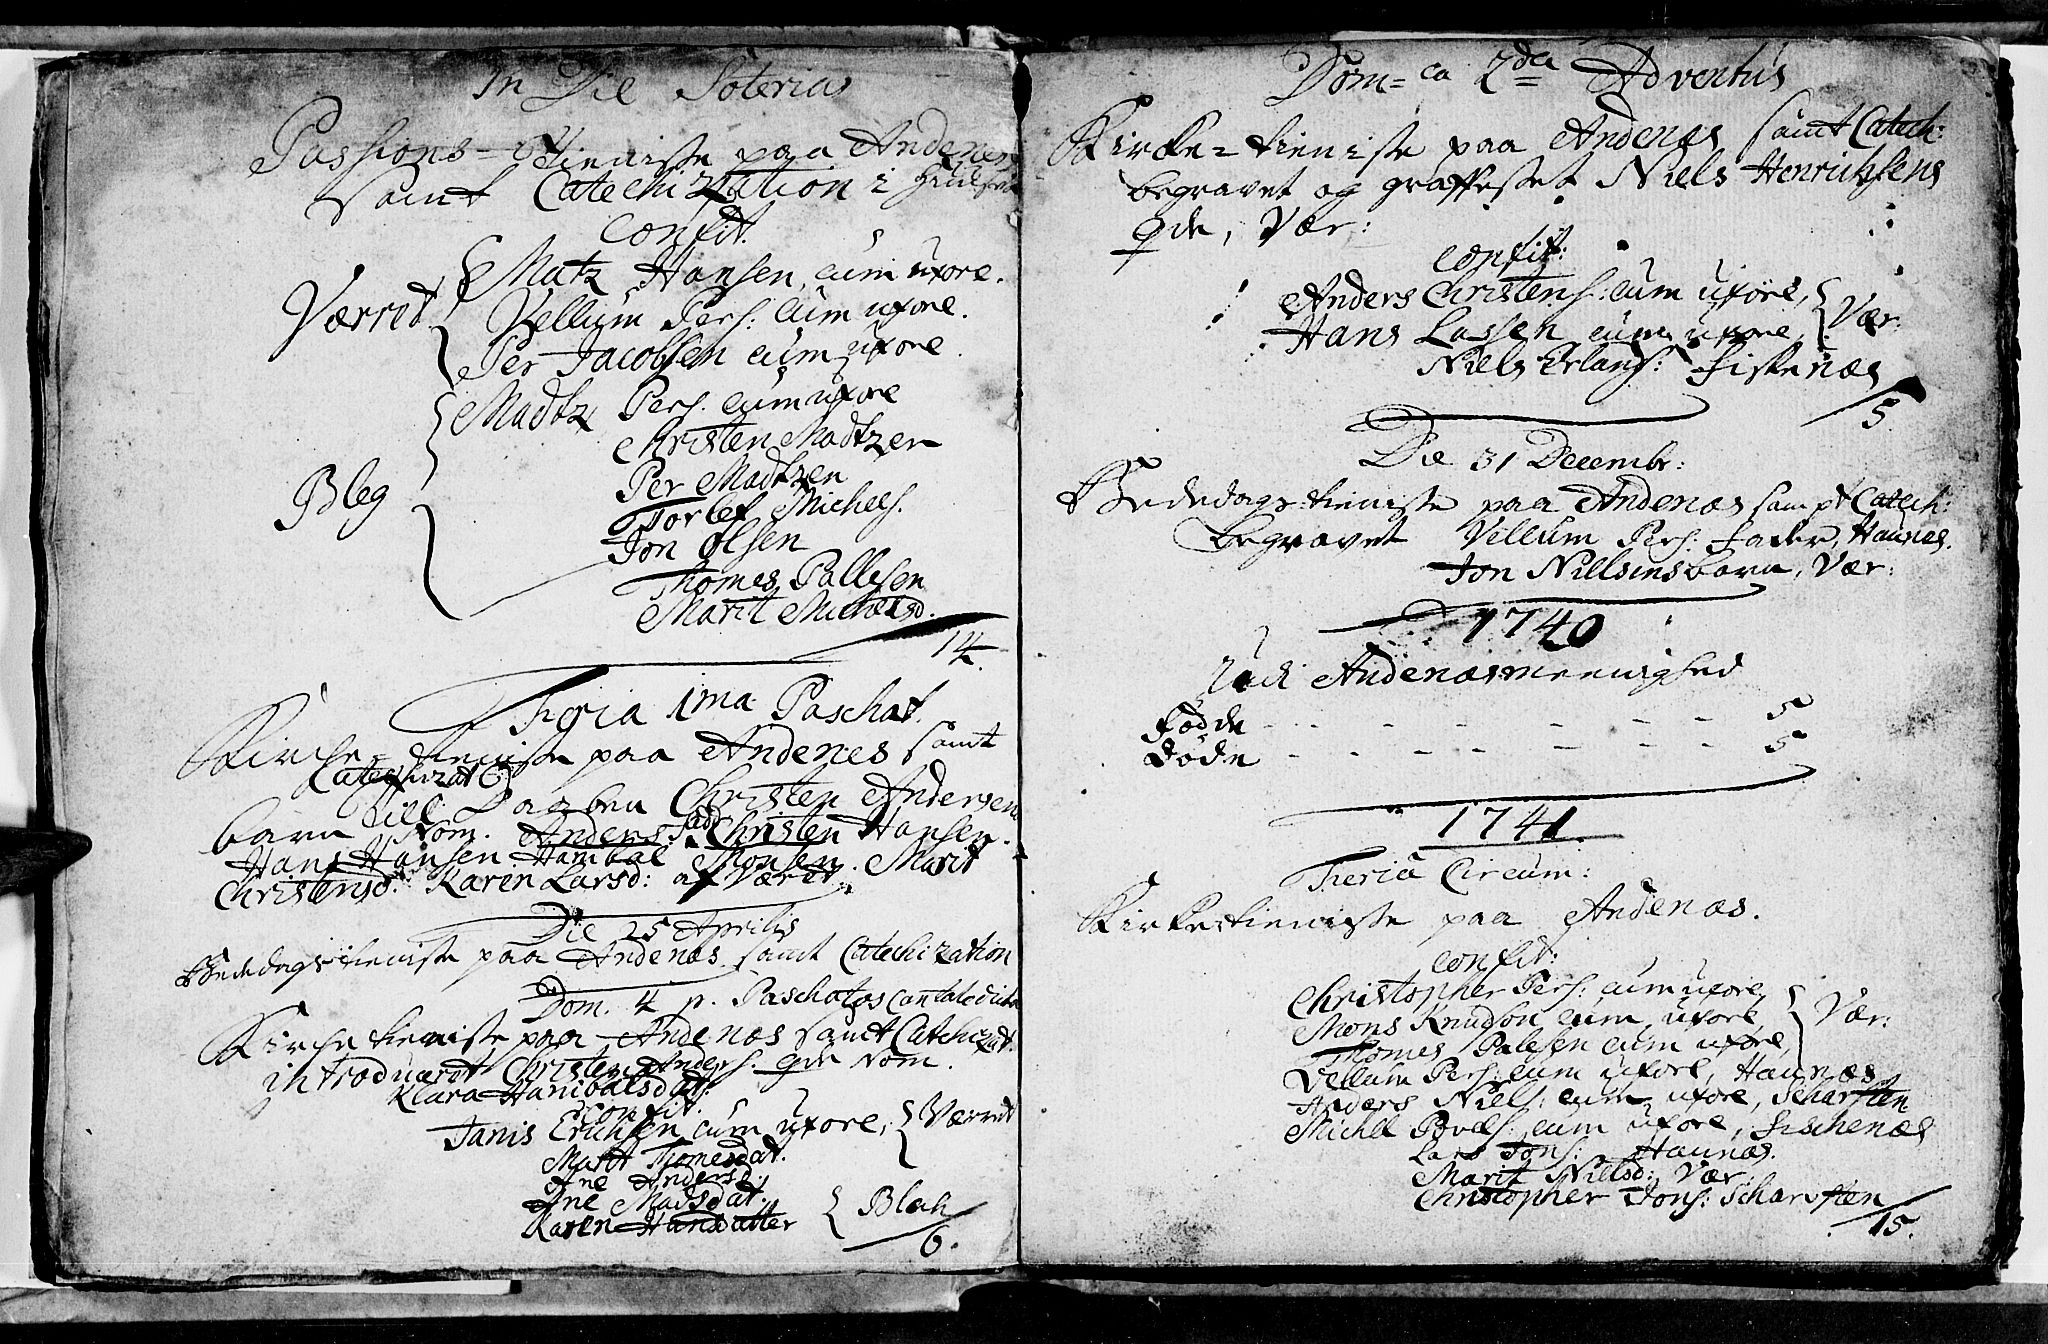 In Die Soteria
Passions-Tieniste paa Andenes
samt Catechization i
Confit.
Matz Hansen, cum uxore.
Værret Vellum Pers: cum uxore.
Per Jacobsen cum uxore.
Madtz Pers. cum uxore
Christen Madtzen
Per Madtzen
Bleg Torlef Michels.
Jon Olsen
Thomes Pallesen
Marit Michelsd.
14.
Feria 1ma Paschat.
Kirche-tieniste paa Andenes samt
Catechizat:
barn till Daaben Christen Andersens
Nom. Anders. Fadd: Christen Hansen.
Hans Hansen Hanibal Monsen. Marit
Christensd. Karen Larsd: af Værret.
Die 25 Aprilis
Bededags tieniste paa Andenæs samt Catechization
Dom. 4 p. Paschatos Cantate dicta
Kirche tieniste paa Andenæs samt Catechizat.
introduceret Christen Anders. qde Nom.
Klara Hanibalsdat:
Confit.
Janis Erichsen cum uxore, Værret
Marit Thomesdat.
Ane Andersd.
Ane Madsdat.
Karen Hansdatter Bleh
6.
Dom-ca 2da Adventus
Kirke-tieniste paa Andenæs samt Catech:
begravet og graffæstet Niels Henrichsens
qde, Vær:
Confit:
Anders Christens: cum uxore,
Hans Lassen cum uxore, Vær:
Niels Erlans: Fiskenæs
5
Die 31 Decembr:
Bededags-tieniste paa Andenæs sampt Catech:
begravet Vellum Pers: Fader, Haunæs.
Jon Nillsens barn, Vær:
1740
udi Andenæs meenighed
Fødde - - - - - - - 5
Døde - - - - - - - 5
1741
Feria Circum:
Kirketieniste paa Andenæs.
Confit:
Christopher Pers: cum uxore,
Mons Knudson cum uxore, Vær:
Thomes Palesen cum uxore,
Vellum Pers: cum uxore, Haunæs
Anders Niels: cum uxore, Scharsten
Michel Povels: cum uxore, Fischenæs
Lars Jons: Haunæs.
Marit Nielsd: Vær:
Christopher Jons: Scharsten
15.